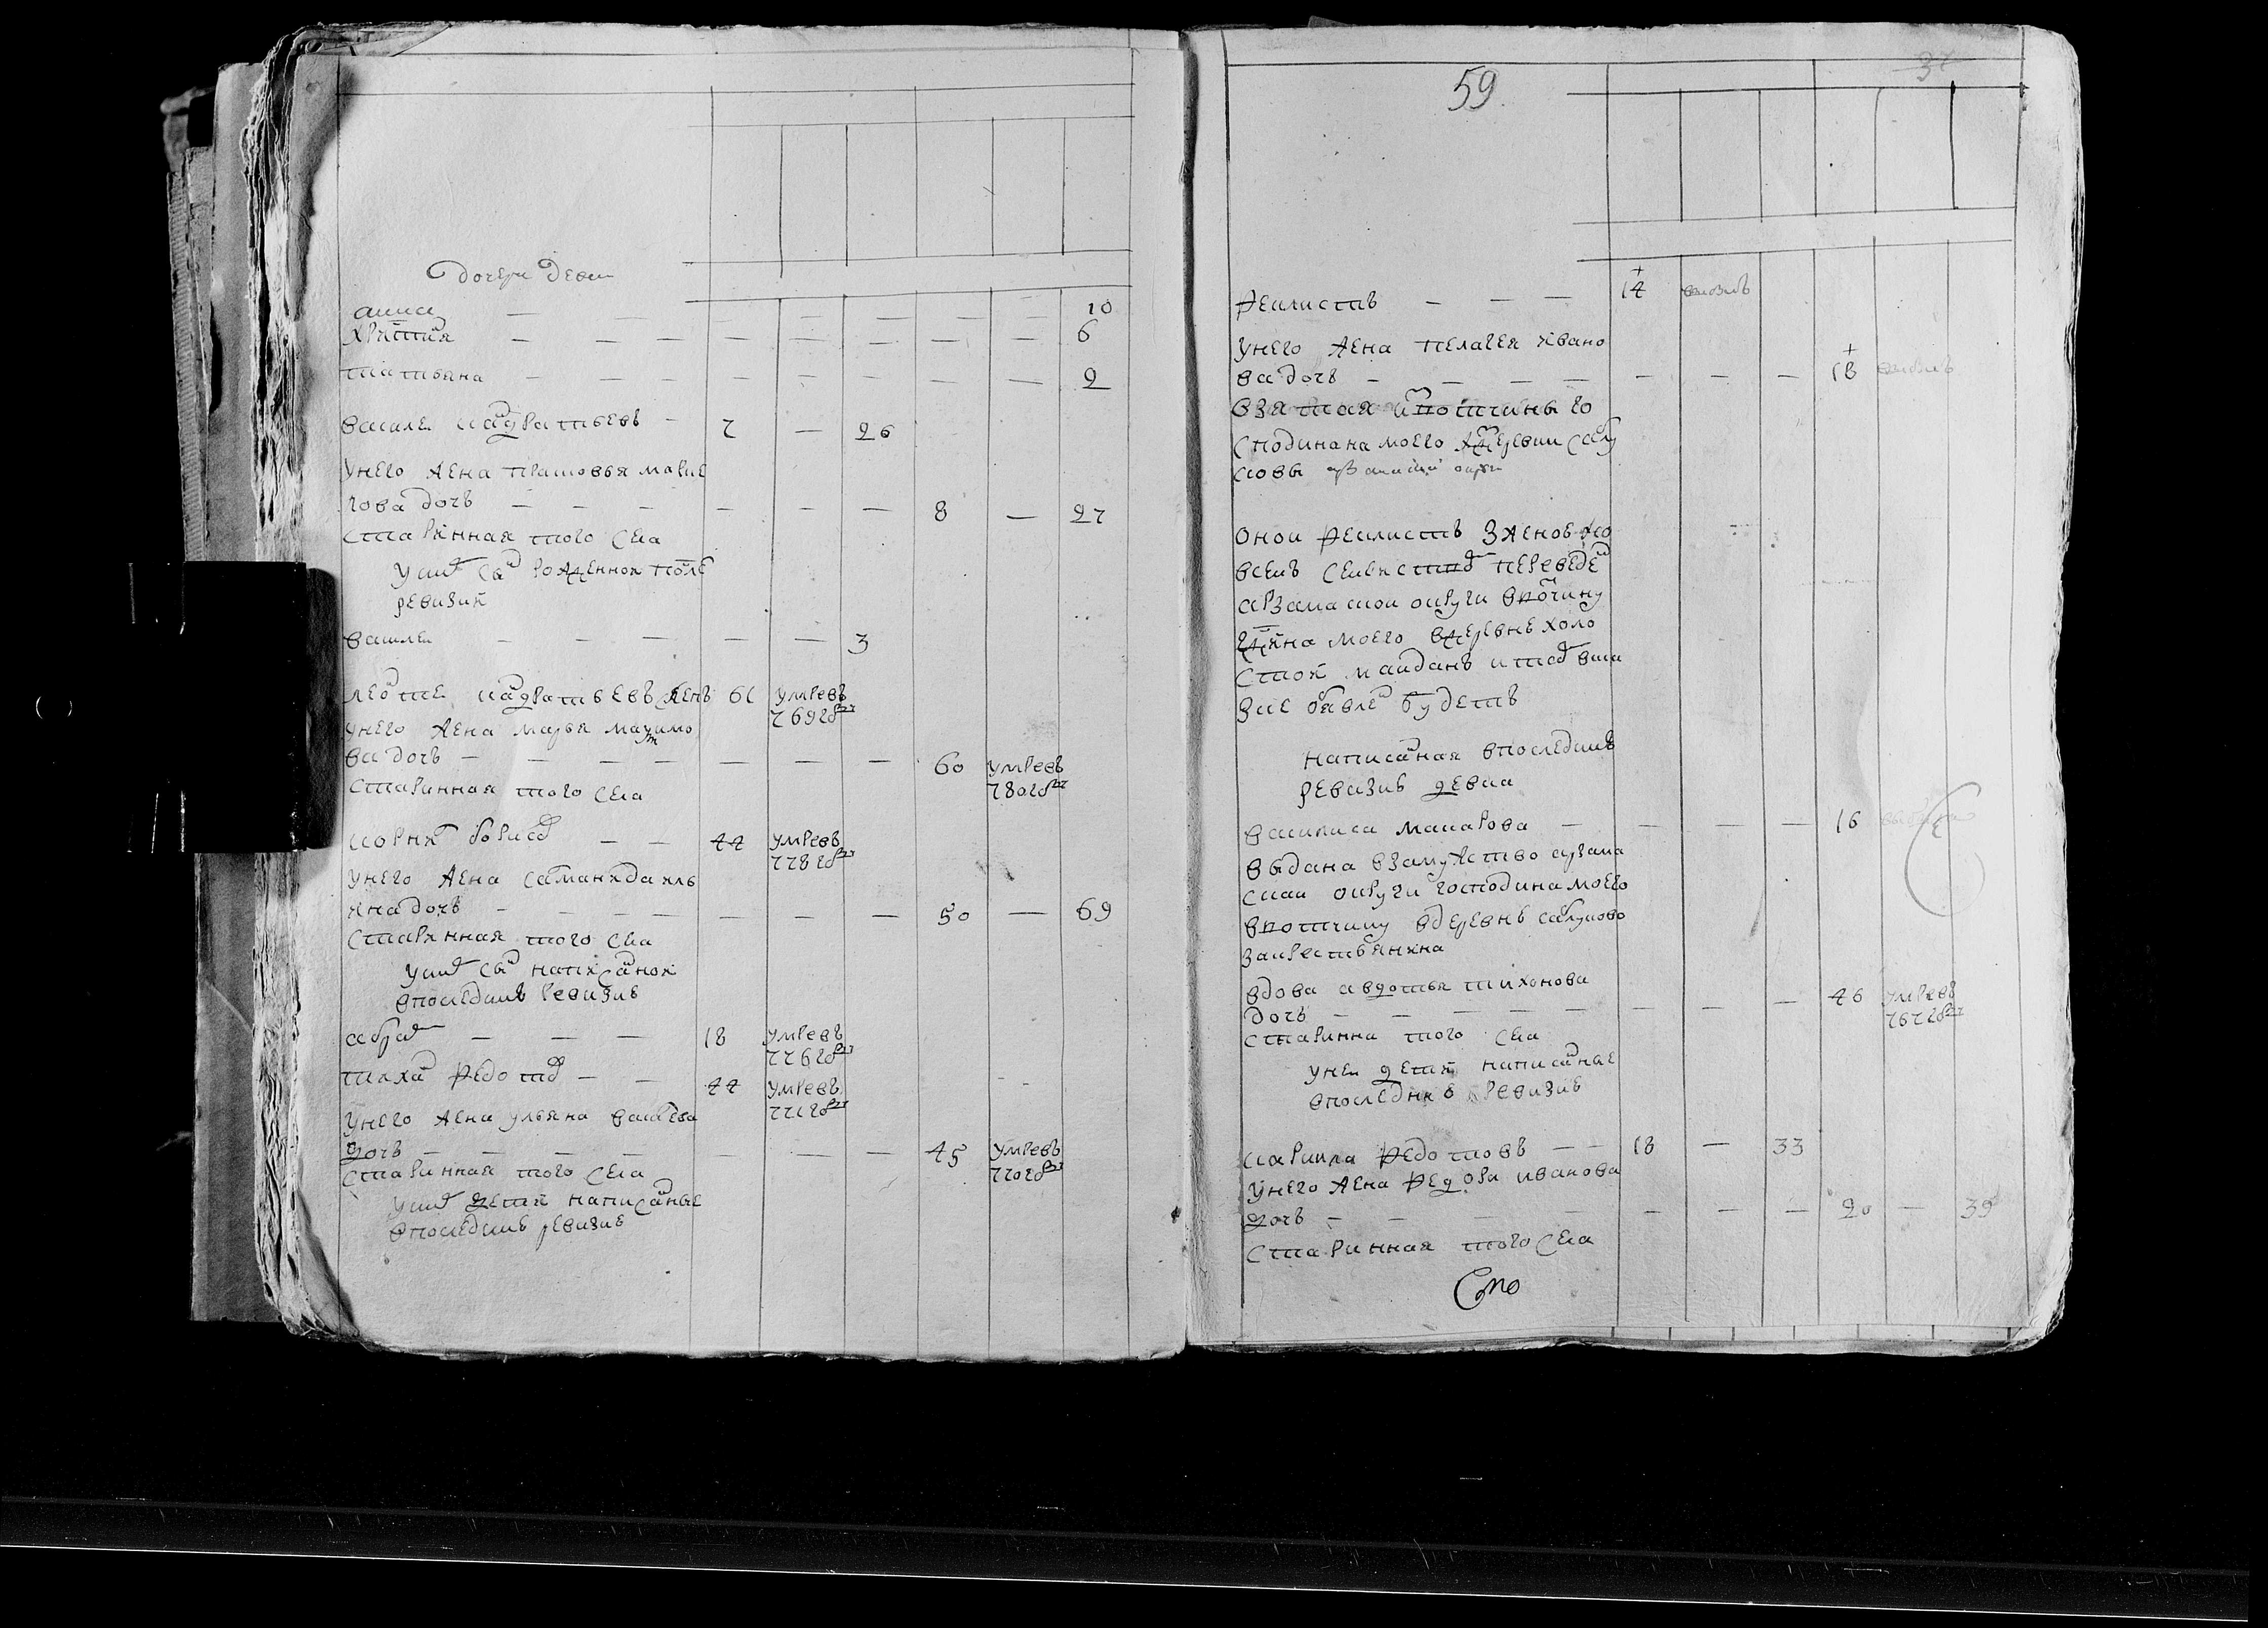 дочери девки
аниса — — — — — — — — 10
христия — — — — — — — — — 6
татьяна — — — — — — — — — 2
василеи кадратьевъ — 7 — 26
унего жена прасковья марке
лова дочь — — — — — — 8 — 27
старинная того села
у них сын рожденнои после
ревизии
василеи — — — — — 3
леонтеи кадратьевъ сынъ 61 умревъ
769 году
унего жена марья максимо
ва дочь — — — — — — — 60 умревъ
780 году
старинная того села
корнил борисов — — 44 умревъ
778 году
унего жена саманида иль
ина дочь — — — — — — — 50 — 69
старинная того села
у них сын написанои
впоследнеи ревизиѣ
— — — 18 умревъ
776 году
тихан федотов — — 44 умревъ
771 году
унего жена ульяна васильева
дочь — — — — — — — 45 умревъ
770 году
старинная того села
у них дети написаные
впоследнеи ревизиѣ
59
37
феклистъ — — — 14
унего жена пелагея ивано
ва дочь — — — — — — — 18
взятая из вотчины го
сподина моего из деревни сабу
ковы арзамаскои округи
онои феклистъ зженою со
всемъ семѣиством переведен
арзамаскои округи в вотчину
гдина моего в деревнѣ холо
стои маидан и тамо в ска
зке обявлен будетъ
написаная впоследнеи
ревизиѣ девка
василиса макарова — — — — 16
выдана взамужство арзама
скаи округи господина моего
ввотчину вдеревнѣ сабуково
закрестьянина
вдова авдотья тихонова
дочь — — — — — — — — 46 умревъ
767 году
старинна того села
унеи дети написаные
впоследнеи ревизиѣ
карила федотовъ — — 18 — 33
унего жена федора иванова
дочь — — — — — — — 20 — 39
старинная того села